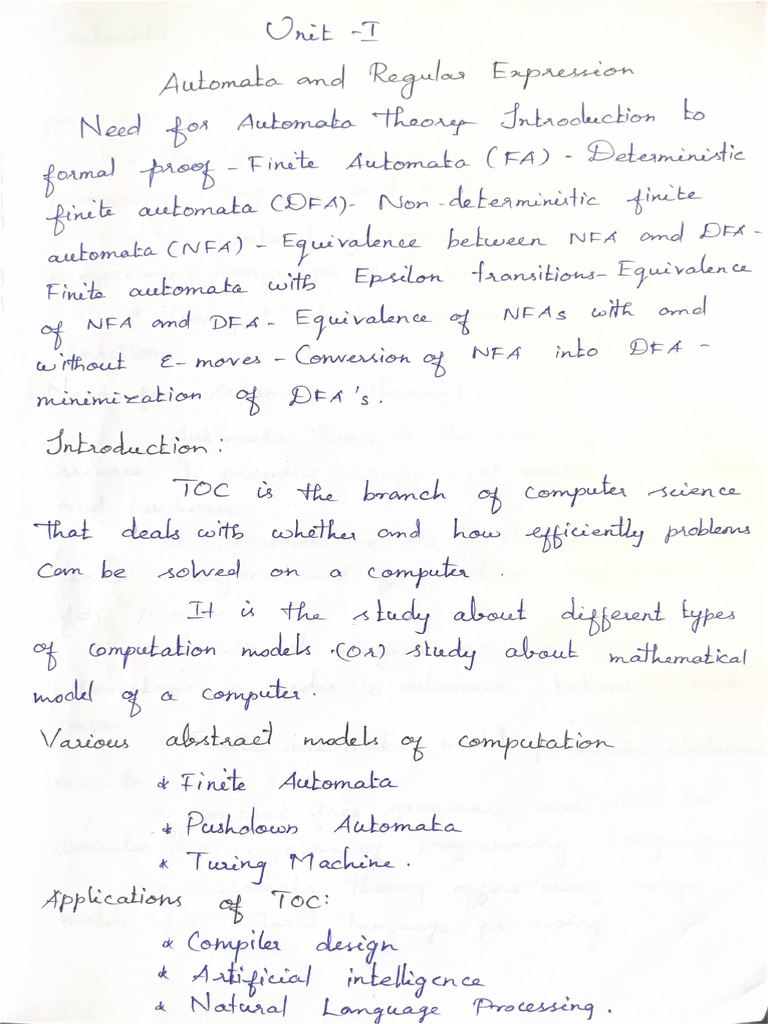 Unit - I
Automata and Regular Expression
Need for Automata theory Introduction to
formal proof - Finite Automata (FA) - Deterministic
finite automata (DFA) - Non-deterministic finite
automata (NFA) - Equivalence between NFA and DFA -
Finite automata with Epsilon transitions - Equivalence
of NFA and DFA - Equivalence of NFAs with and
without ε-moves - Conversion of NFA into DFA -
minimization of DFA's.
Introduction:
TOC is the branch of computer science
that deals with whether and how efficiently problems
can be solved on a computer.
It is the study about different types
of computation models (or) study about mathematical
model of a computer.
Various abstract models of computation
* Finite Automata
* Pushdown Automata
* Turing Machine.
Applications of TOC:
* Compiler design
* Artificial intelligence
* Natural Language Processing.